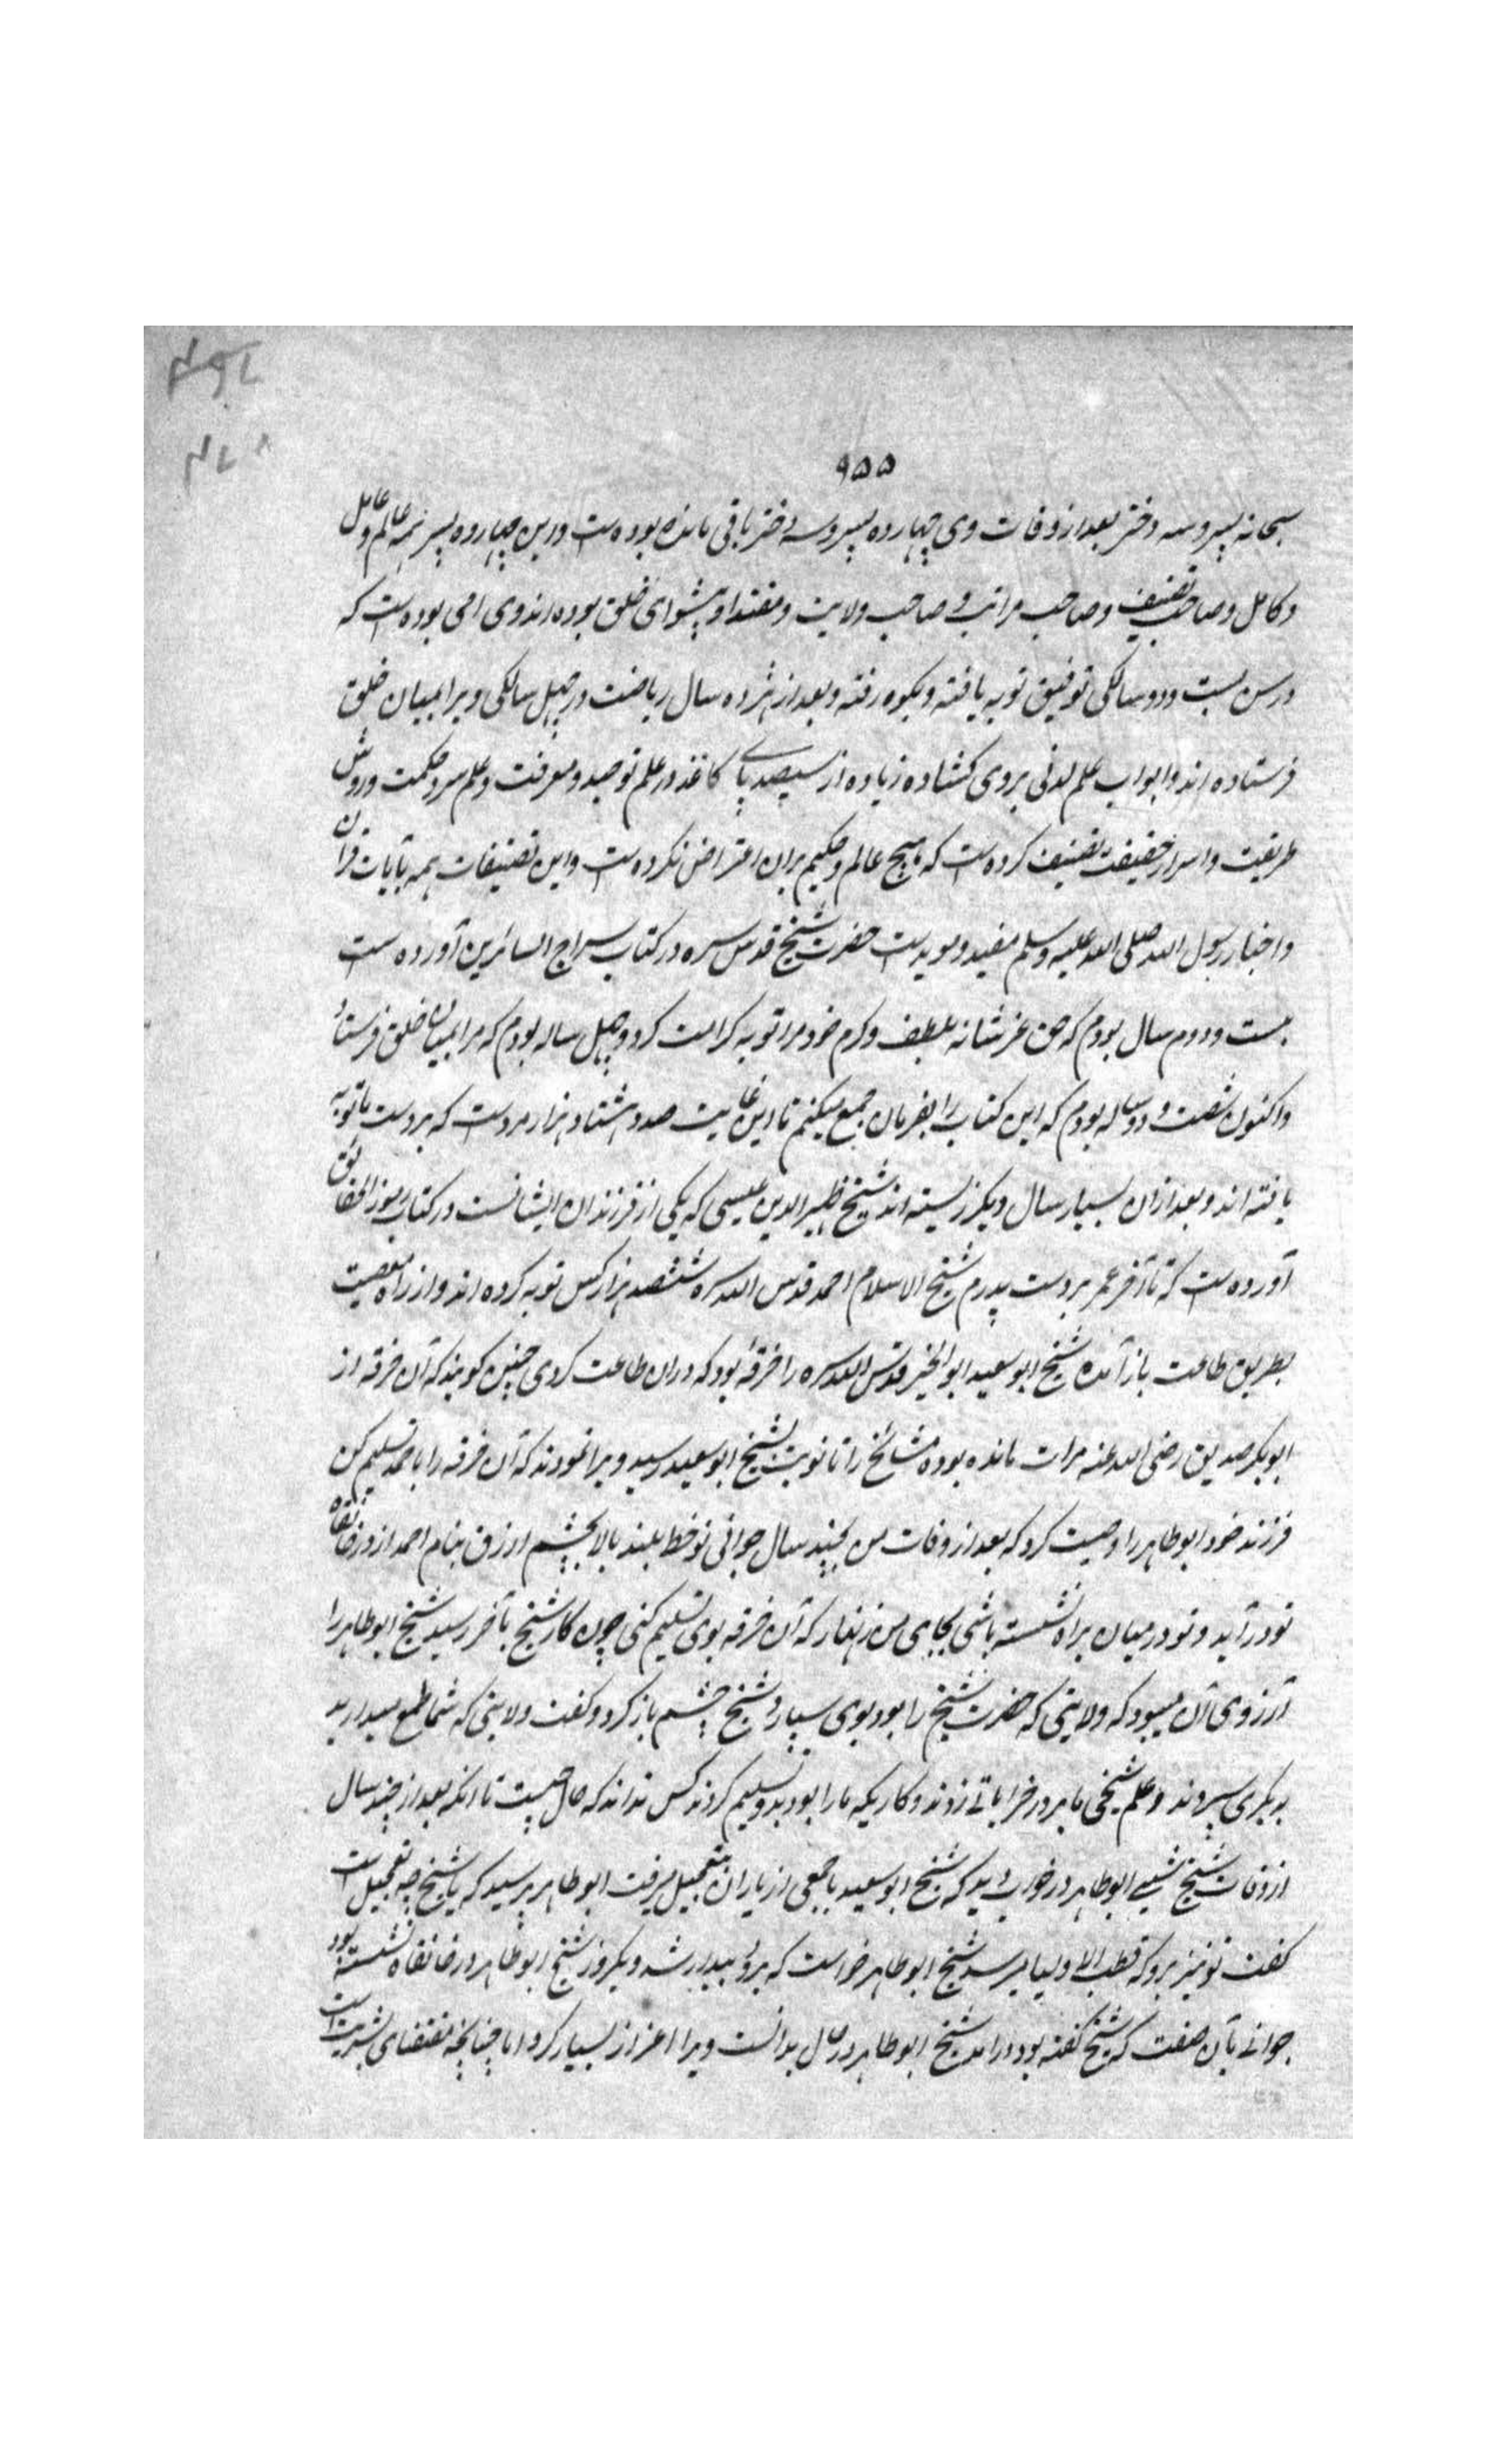 ۹۵۵
سبحانه پسر و سه دختر بعد از وفات وی چهارده پسر و سه دختر باقی مانده بوده است و این چهارده پسر همه عالم و عامل
و کامل و صاحب تصنیف و صاحب مراتب و صاحب ولایت و مقتدا و پیشوای خلق بوده اند و وی امی بوده است که
در سن بیست و دو سالکی توفیق توبه یافته و بکوه رفته و بعد از هژده سال ریاضت در چهل سالکی ویرا بمیان خلق
فرستاده اند و ابواب علم لدنی بروی کشاده زیاده از سیصد تای کاغذ در علم توحید و معرفت و علم سر و حکمت و روش
طریقت و اسرار حقیقت تصنیف کرده است که هیچ عالم و حکیم بران اعتراض نکرده است و این تصنیفات همه بآیات قرآن
و اخبار رسول الله صلی الله علیه وسلم مقید و موید است حضرت شیخ قدس سره در کتاب سراج السائرین آورده است
بیست و دوم سال بودم که حق عز شانه بلطف و کرم خود مرا توبه کرامت کرد و چهل ساله بودم که مرا بمیان خلق فرستاد
و اکنون شصت و دو ساله بودم که این کتاب را بفرمان جمع میکنم تا این غایت صد و هشتاد هزار مرد است که بر دست ما توبه
یافته اند و بعد از ان بسیار سال دیکر زیسته اند شیخ ظهیر الدین عیسی که یکی از فرزندان ایشانست در کتاب رموز الحقائق
آورده است که تا آخر عمر بر دست پدرم شیخ الاسلام احمد قدس الله سره ششصد هزار کس توبه کرده اند و از راه معصیت
بطریق طاعت باز آمده شیخ ابو سعید ابو الخیر قدس الله سره را خرقهٔ بود که دران طاعت کردی چنین کویند که آن خرقه از
ابوبکر صدیق رضی الله عنه مرات مانده بوده مشائخ را تا نوبت بشیخ ابو سعید رسید ویرا نمودند که آن خرقه را باحمد تسلیم کن
فرزند خود ابو طاهر را وصیت کرد که بعد از وفات من بچند سال جوانی نو خط بلند بالا بچشم ازرق بنام احمد از در خانقاه
تو در آید و تو در میان یاران نشسته باشی بجای من زنهار که آن خرقه بوی تسلیم کنی چون کار شیخ بآخر رسید شیخ ابو طاهر را
آرزوی آن میبود که ولایتی که حضرت شیخ را بود بوی سپارد شیخ چشم باز کرد و کفت ولایتی که شما طمع میدارید
بدیکری سپردند و علم شیخی ما بر در خراباتی زدند و کاریکه ما را بود بدو تسلیم کردند کس نداند که حال چیست تا انکه بعد از چند سال
از وفات شیخ شبی ابو طاهر در خواب دید که شیخ ابو سعید با جمعی از یاران بتعجیل میرفت ابو طاهر پرسید که یا شیخ چه تعجیل است
کفت تو نیز برو که قطب الاولیا میرسد شیخ ابو طاهر خواست که برود بیدار شد دیکر روز شیخ ابو طاهر در خانقاه نشسته بود
جوانی بآن صفت که شیخ کفته بود در امد شیخ ابو طاهر در حال بدانست ویرا اعزاز بسیار کرد اما چنانچه مقتضای بشریت است